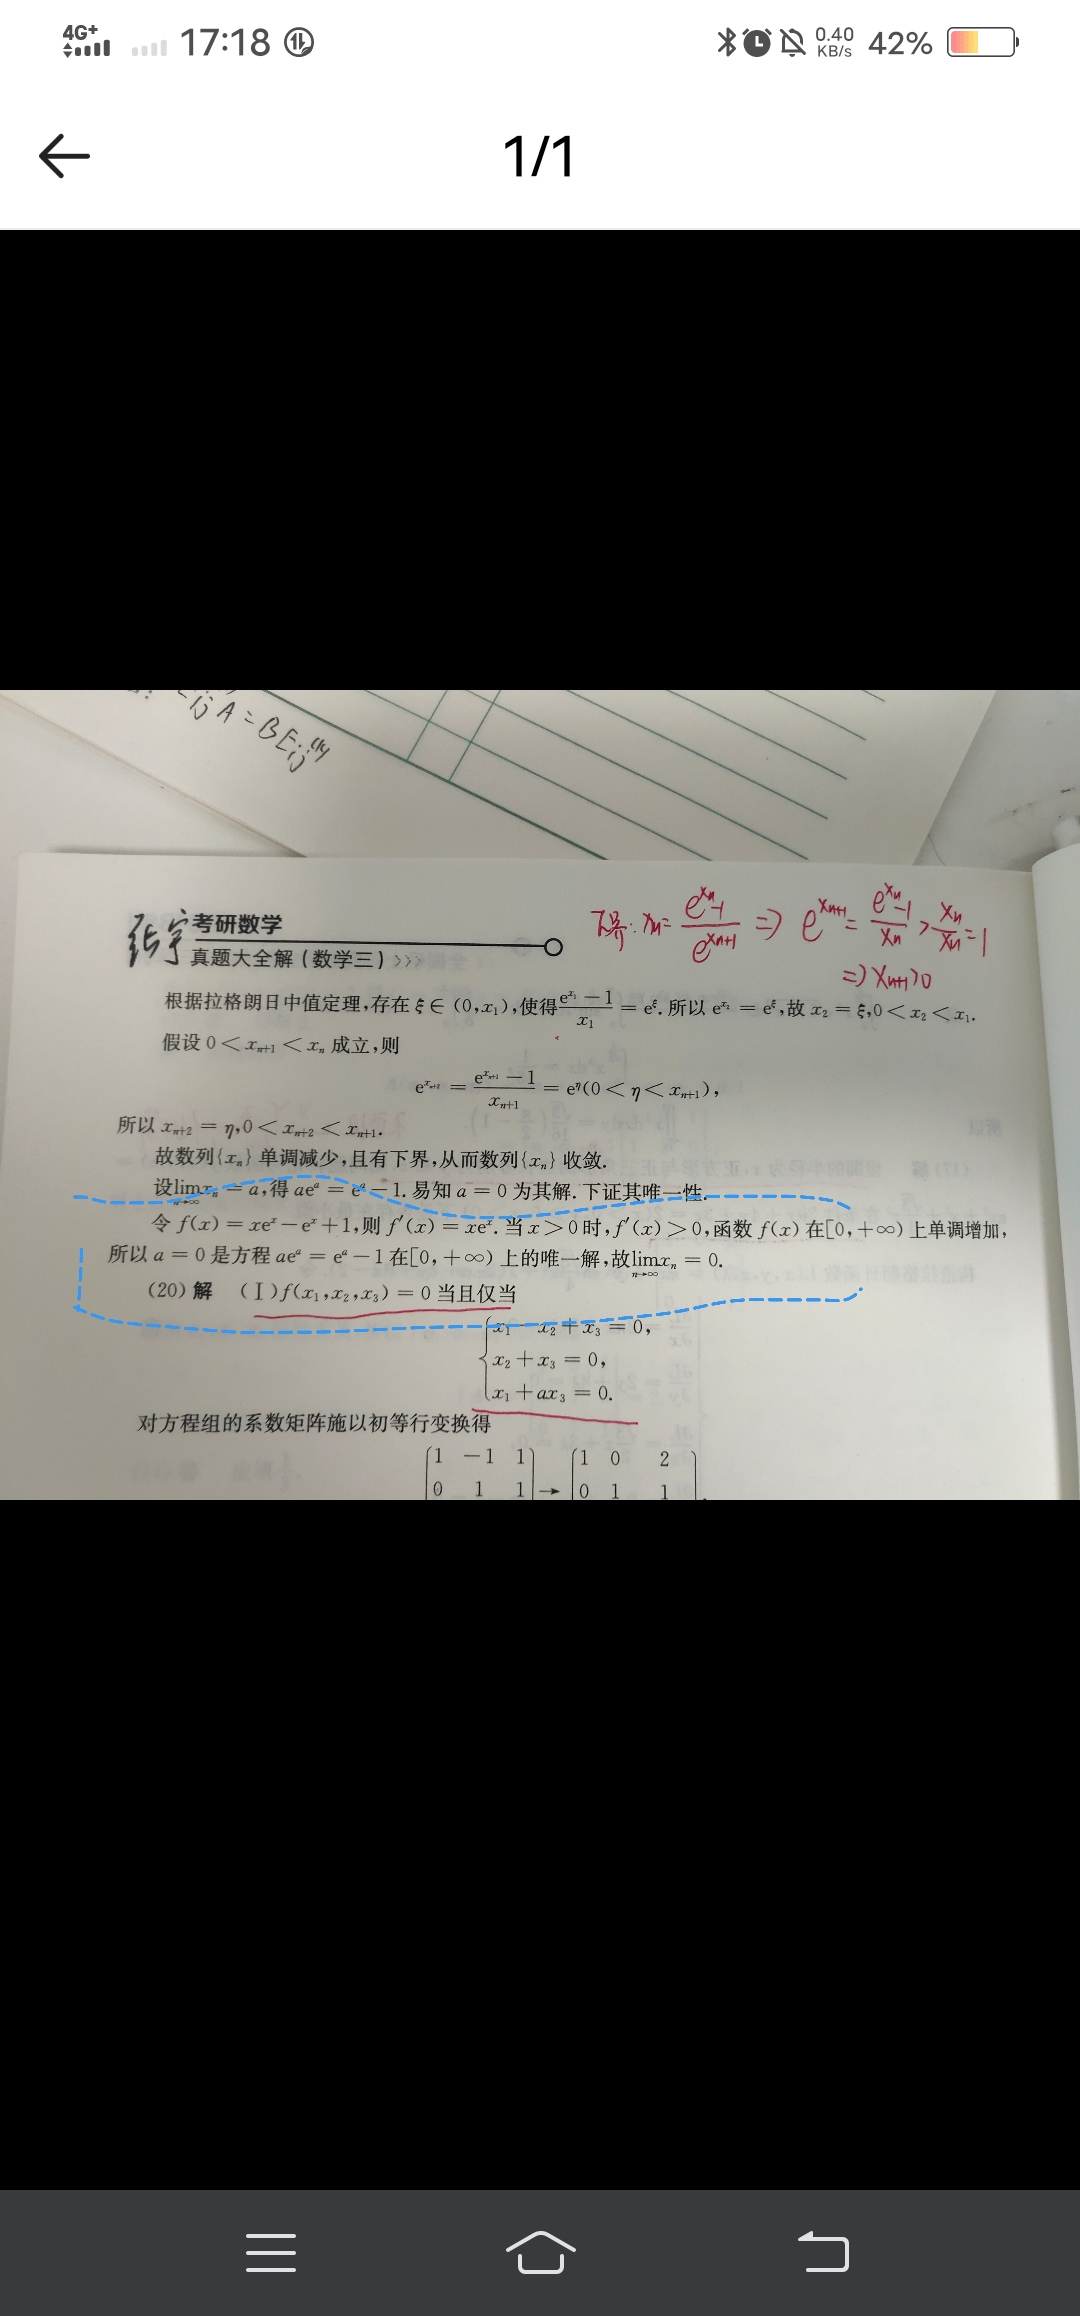 4G+ 17:18 0.40 KB/s 42%
1/1
A = BEij
张宇 考研数学
真题大全解(数学三)>>>
xn = (e^{xn} - 1)/e^{xn+1} => e^{xn+1} = (e^{xn} - 1)/xn > xn/xn = 1
=> xn+1 > 0
根据拉格朗日中值定理,存在 ξ∈(0,x₁),使得 (e^{x₁} - 1)/x₁ = e^ξ. 所以 e^{x₂} = e^ξ,故 x₂ = ξ,0 < x₂ < x₁.
假设 0 < x_{n+1} < x_n 成立,则
e^{x_{n+2}} = (e^{x_{n+1}} - 1)/x_{n+1} = e^η (0 < η < x_{n+1}),
所以 x_{n+2} = η,0 < x_{n+2} < x_{n+1}.
故数列{x_n}单调减少,且有下界,从而数列{x_n}收敛.
设 lim_{n→∞} x_n = a,得 ae^a = e^a - 1. 易知 a = 0 为其解. 下证其唯一性.
令 f(x) = xe^x - e^x + 1,则 f′(x) = xe^x. 当 x > 0 时,f′(x) > 0,函数 f(x) 在[0,+∞)上单调增加,
所以 a = 0 是方程 ae^a = e^a - 1 在[0,+∞)上的唯一解,故 lim_{n→∞} x_n = 0.
(20) 解 (Ⅰ) f(x₁,x₂,x₃) = 0 当且仅当
x₁ - x₂ + x₃ = 0,
x₂ + x₃ = 0,
x₁ + ax₃ = 0.
对方程组的系数矩阵施以初等行变换得
1 -1 1 1 0 2
0 1 1 → 0 1 1